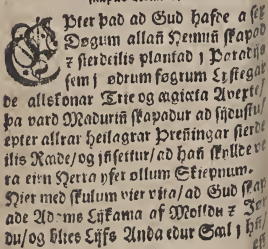 EPter þad ad Gud hafde a sex
Døgum allañ Heimiñ skapad
⁊ sierdeilis plantad j Paradijs
sem j ødrum føgrum Lystegar
de allskonar Trie og ægiæta Avexte/
þa vard Maduriñ skapadur ad sijdustu/
epter allrar heilagrar Preñingar sierde
ilis Ræde/ og jñsettur/ ad hañ skyllde ve
ra eirn Herra yfer ollum Skiepnum.
Hier med skulum vier vita/ ad Gud skap
ade Adams Lijkama af Molldu ⁊ Jør
du/ og blies Lijfs Anda edur Sæl j hañ/